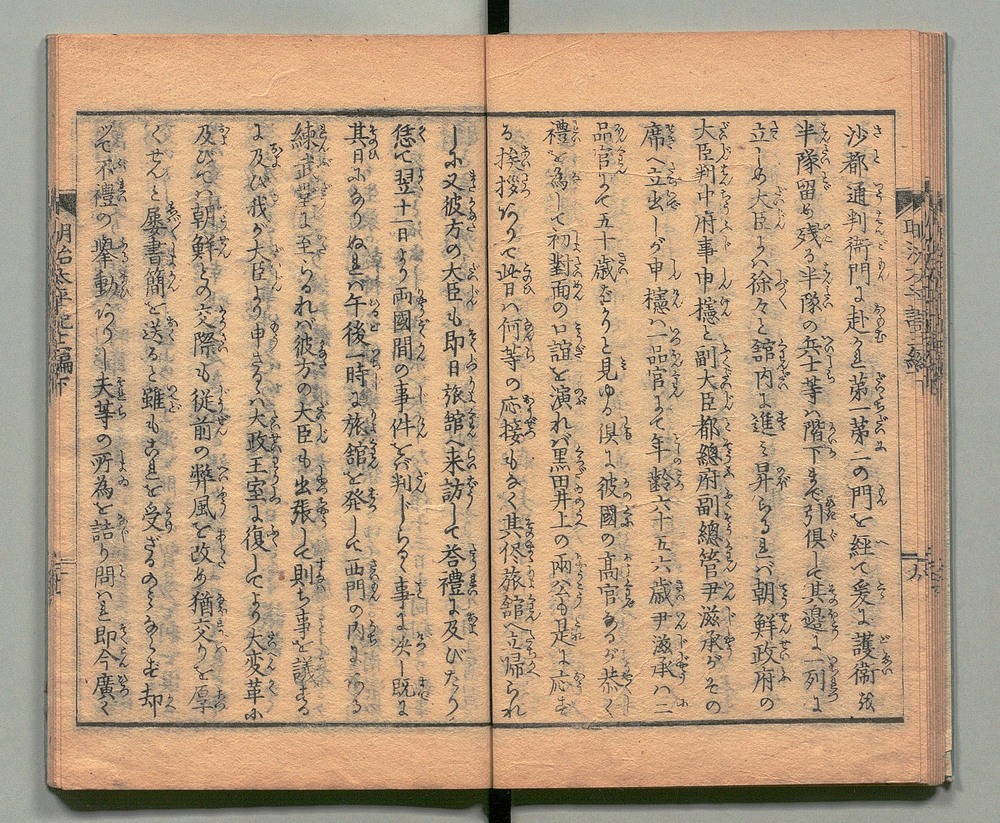 沙都通判衙門に赴かれ第一第二の門を経て爰に護衛の
半隊留め残る半隊の兵士等ハ階下まで引倶して其邊に一列に
立しめ大臣にハ徐々と舘内に進ミ昇らるれバ朝鮮政府の
大臣判中府事申櫶と副大臣都總府副總管尹滋承がその
席へ立出しが申櫶ハ一品官にて年齢六十五六歳尹滋承ハ二
品官にて五十歳ばかりと見ゆる倶に彼國の高官なるが恭しく
禮を為して初對面の口誼を演れバ黒田井上の兩公も是に応ず
る挨拶ありて此日ハ何等の応接もなく其侭旅舘へ立帰られ
しに又彼方の大臣も即日旅舘へ来訪して答禮に及びたり
恁て翌十一日より両國間の事件を判じらるゝ事に决し既に
其日になりぬれバ午後一時に旅舘を発して西門の内なる
練武堂に至らるれバ彼方の大臣も出張して則ち事を議する
に及び我が大臣より申さるゝハ大政王室に復してより大変革に
及びてハ朝鮮との交際も従前の弊風を改め猶交りを厚
くせんと屡書簡を送ると雖もこれを受ざるのミならず却
つて不禮の舉動ありし夫等の所為を詰り問はれ即今廣く
明治太平記十編下